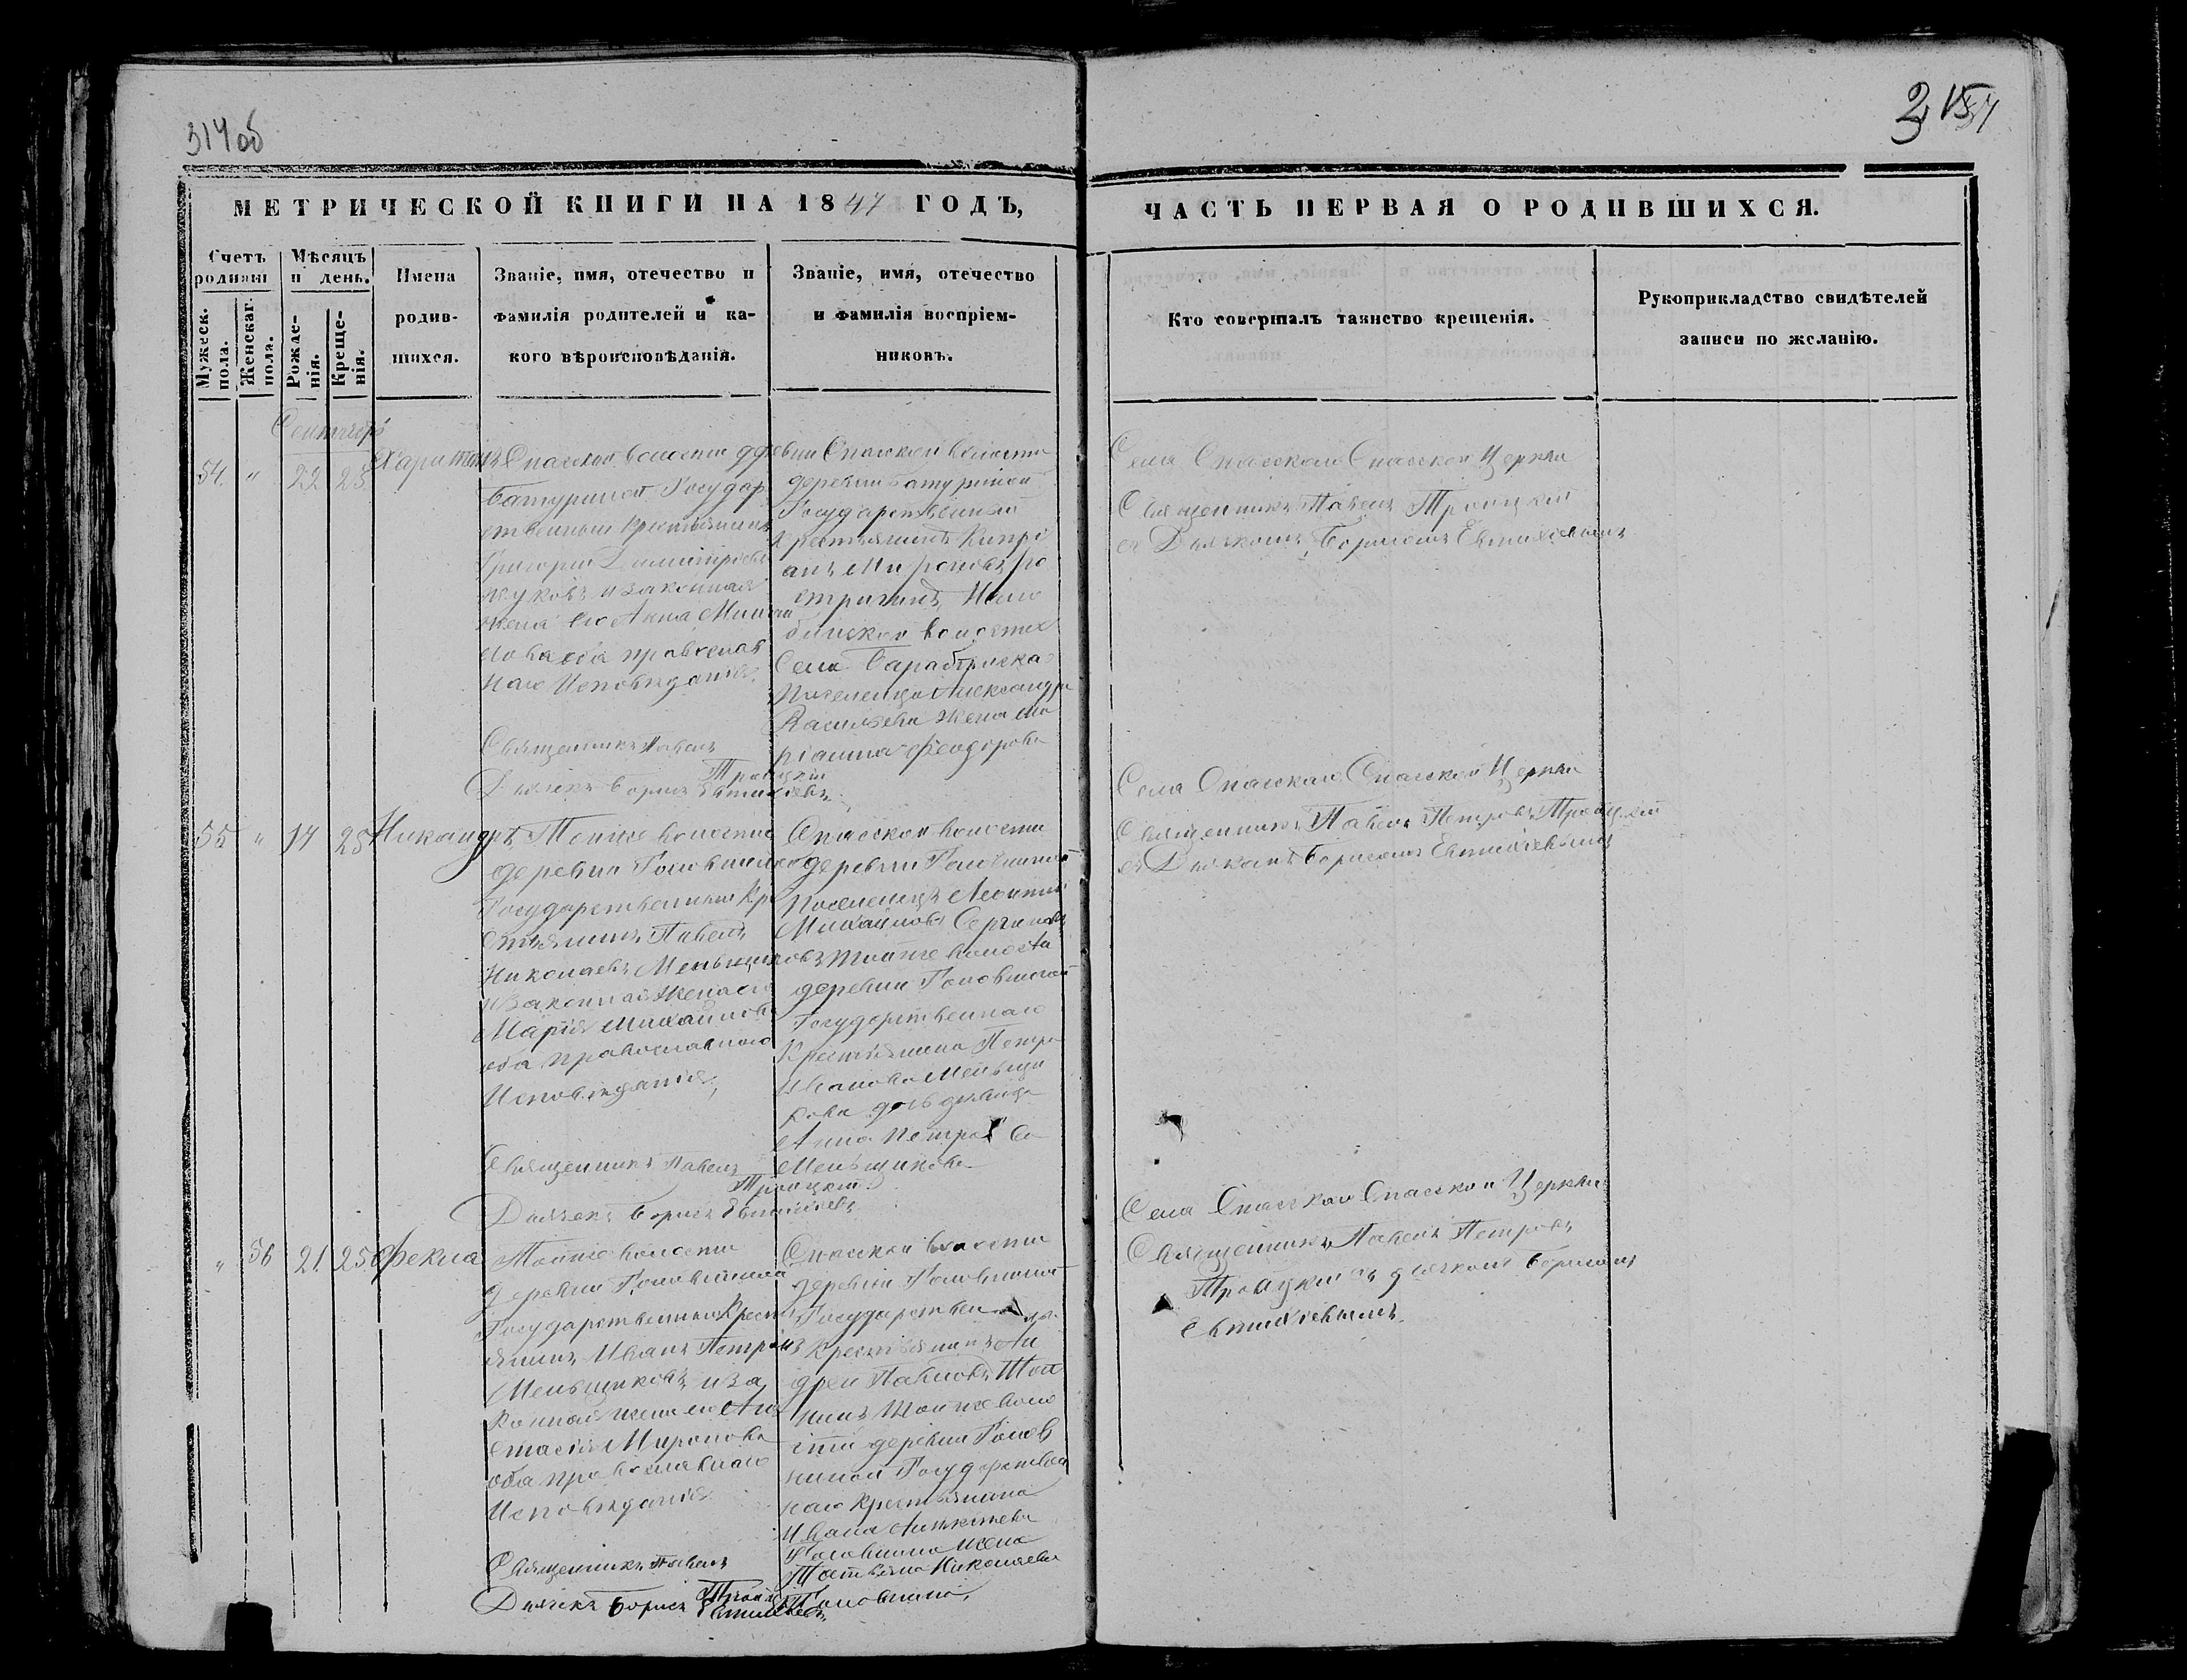 314об
315
МЕТРИЧЕСКОЙ КНИГИ НА 1847 ГОДЪ,
ЧАСТЬ ПЕРВАЯ О РОДИВШИХСЯ.
Счетъ
Мѣсяцъ
и день.
Мужеск. пола.
Женскаг. пола.
Рожденія.
Крещенія.
Имена
родив-
шихся.
Званіе, имя, отечество и
фамилія родителей и ка-
кого вѣроисповѣданія.
Званіе, имя, отечество
и фамилія воспріем-
никовъ.
Кто совершалъ таинство крещенія.
Рукоприкладство свидѣтелей
записи по желанію.
Сентябрь
54. " 22 25 Харитонъ
Спасской волости де
Батуриной Государ
ственный крестьянинъ
Григорій Димитріевъ
Жуковъ и законная
жена его Анна
оба православ
наго Исповѣданія.
Священникъ Павелъ
Троицкій
Дьячекъ Борисъ Евтихіевъ
Спасской волости
деревни Батуриной
Государственный
крестьянинъ Кипрі
анъ Мироновъ
волости
Села
поселенца Александра
Васильева жена Ма
ріанна Феодорова
Села Спасскаго Спасской Церкви
Священникъ Павелъ Троицкій
съ Дьячкомъ Борисомъ Евтихіевымъ
55 " 14 25 Никандръ
Тойже волости
деревни Головниной
Государственный Кр
естьянинъ Павелъ
Николаевъ Меньщиковъ
и Законная жена его
Марія Михайлова
оба православнаго
Исповѣданія,
Священникъ Павелъ
Троицкій
Дьячекъ Борисъ Евтихіевъ
Спасской волости
деревни Головниной
поселенецъ Леонтій
Михайловъ
тойже волости
деревни Головниной
Государственнаго
Крестьянина Петра
Иванова Меньщи
кова дочь девица
Анна Петрова
Меньщикова
Села Спасскаго Спасской Церкви
Священникъ Павелъ Петровъ Троицкій
съ Дьячкомъ Борисомъ Евтихіевымъ
" 56 21 25 Фекла
Тойже волости
деревни Головниной
Государственный Крест
янинъ Иванъ Петровъ
Меньщиковъ и за
конная жена его Ана
стасія Миронова
оба православнаго
Исповѣданія
Священникъ Павелъ
Троицкій
Дьячекъ Борисъ Евтихіевъ
Спасской волости
деревни Головниной
Государственный
Крестьянинъ Ан
дрей Павловъ
тойже воло
сти деревни Голов
ниной Государствен
наго Крестьянина
Ивана
Головнина жена
Татьяна Николаева
Головнина,
Села Спасскаго Спасской Церкви
Священникъ Павелъ Петровъ
Троицкій съ дьячкомъ Борисомъ
Евтихіевымъ